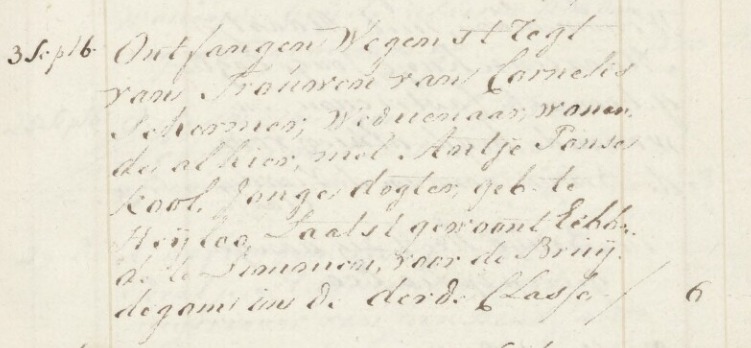 3 Septb. Ontfangen Wegens t Regt
van Trouwen van Cornelis
Schermer, Weduenaar, wonen
de alhier, met Antje Panses
Kool, Jonge dogter, geb. te
Heijloo, Laatst gewoont hebbe.
de te Limmen, voor de Bruij
degom in de derde Classe / 6